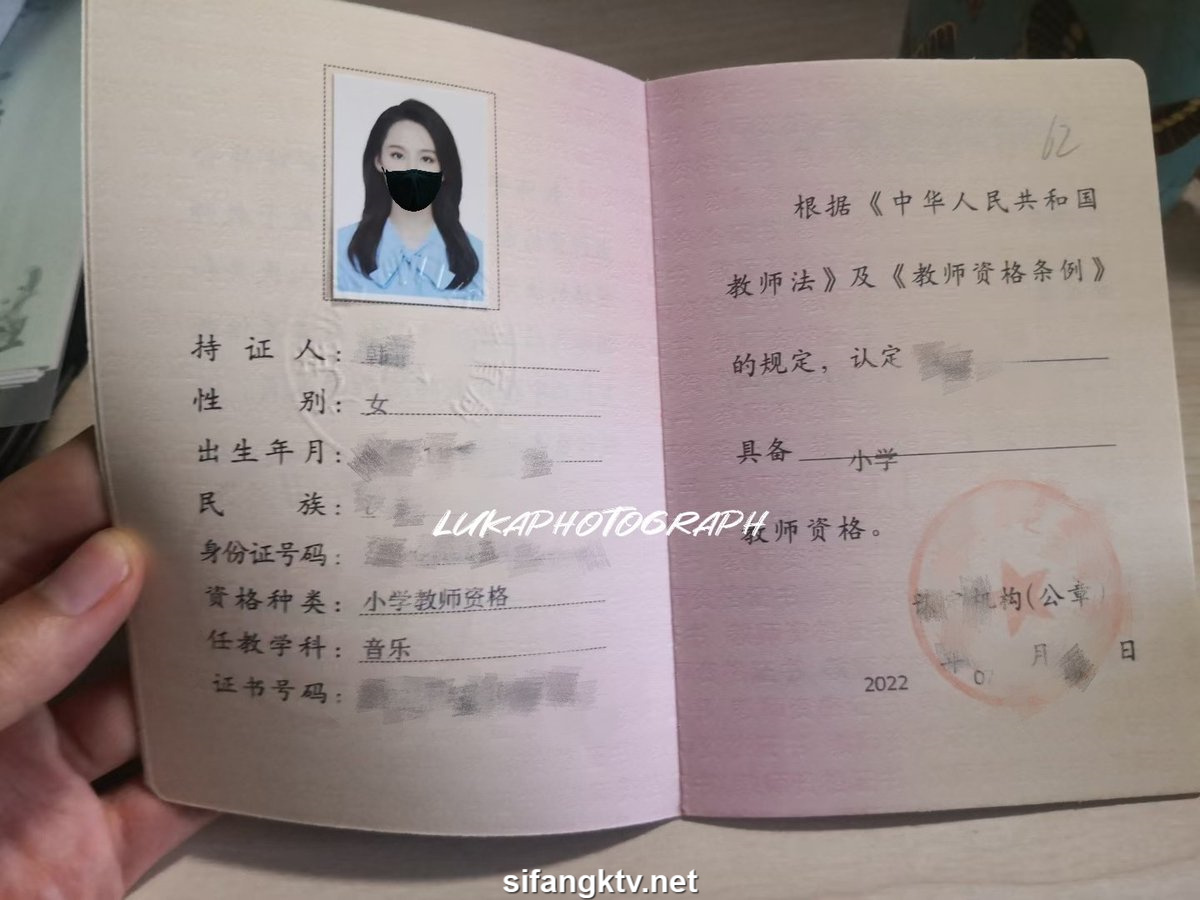 持证人：
性别：女
出生年月：
民族：
身份证号码：
资格种类：小学教师资格
任教学科：音乐
证书号码：
62
根据《中华人民共和国
教师法》及《教师资格条例》
的规定，认定
具备 小学
教师资格。
机构(公章)
2022 年 月 日
LUKAPHOTOGRAPH
sifangktv.net